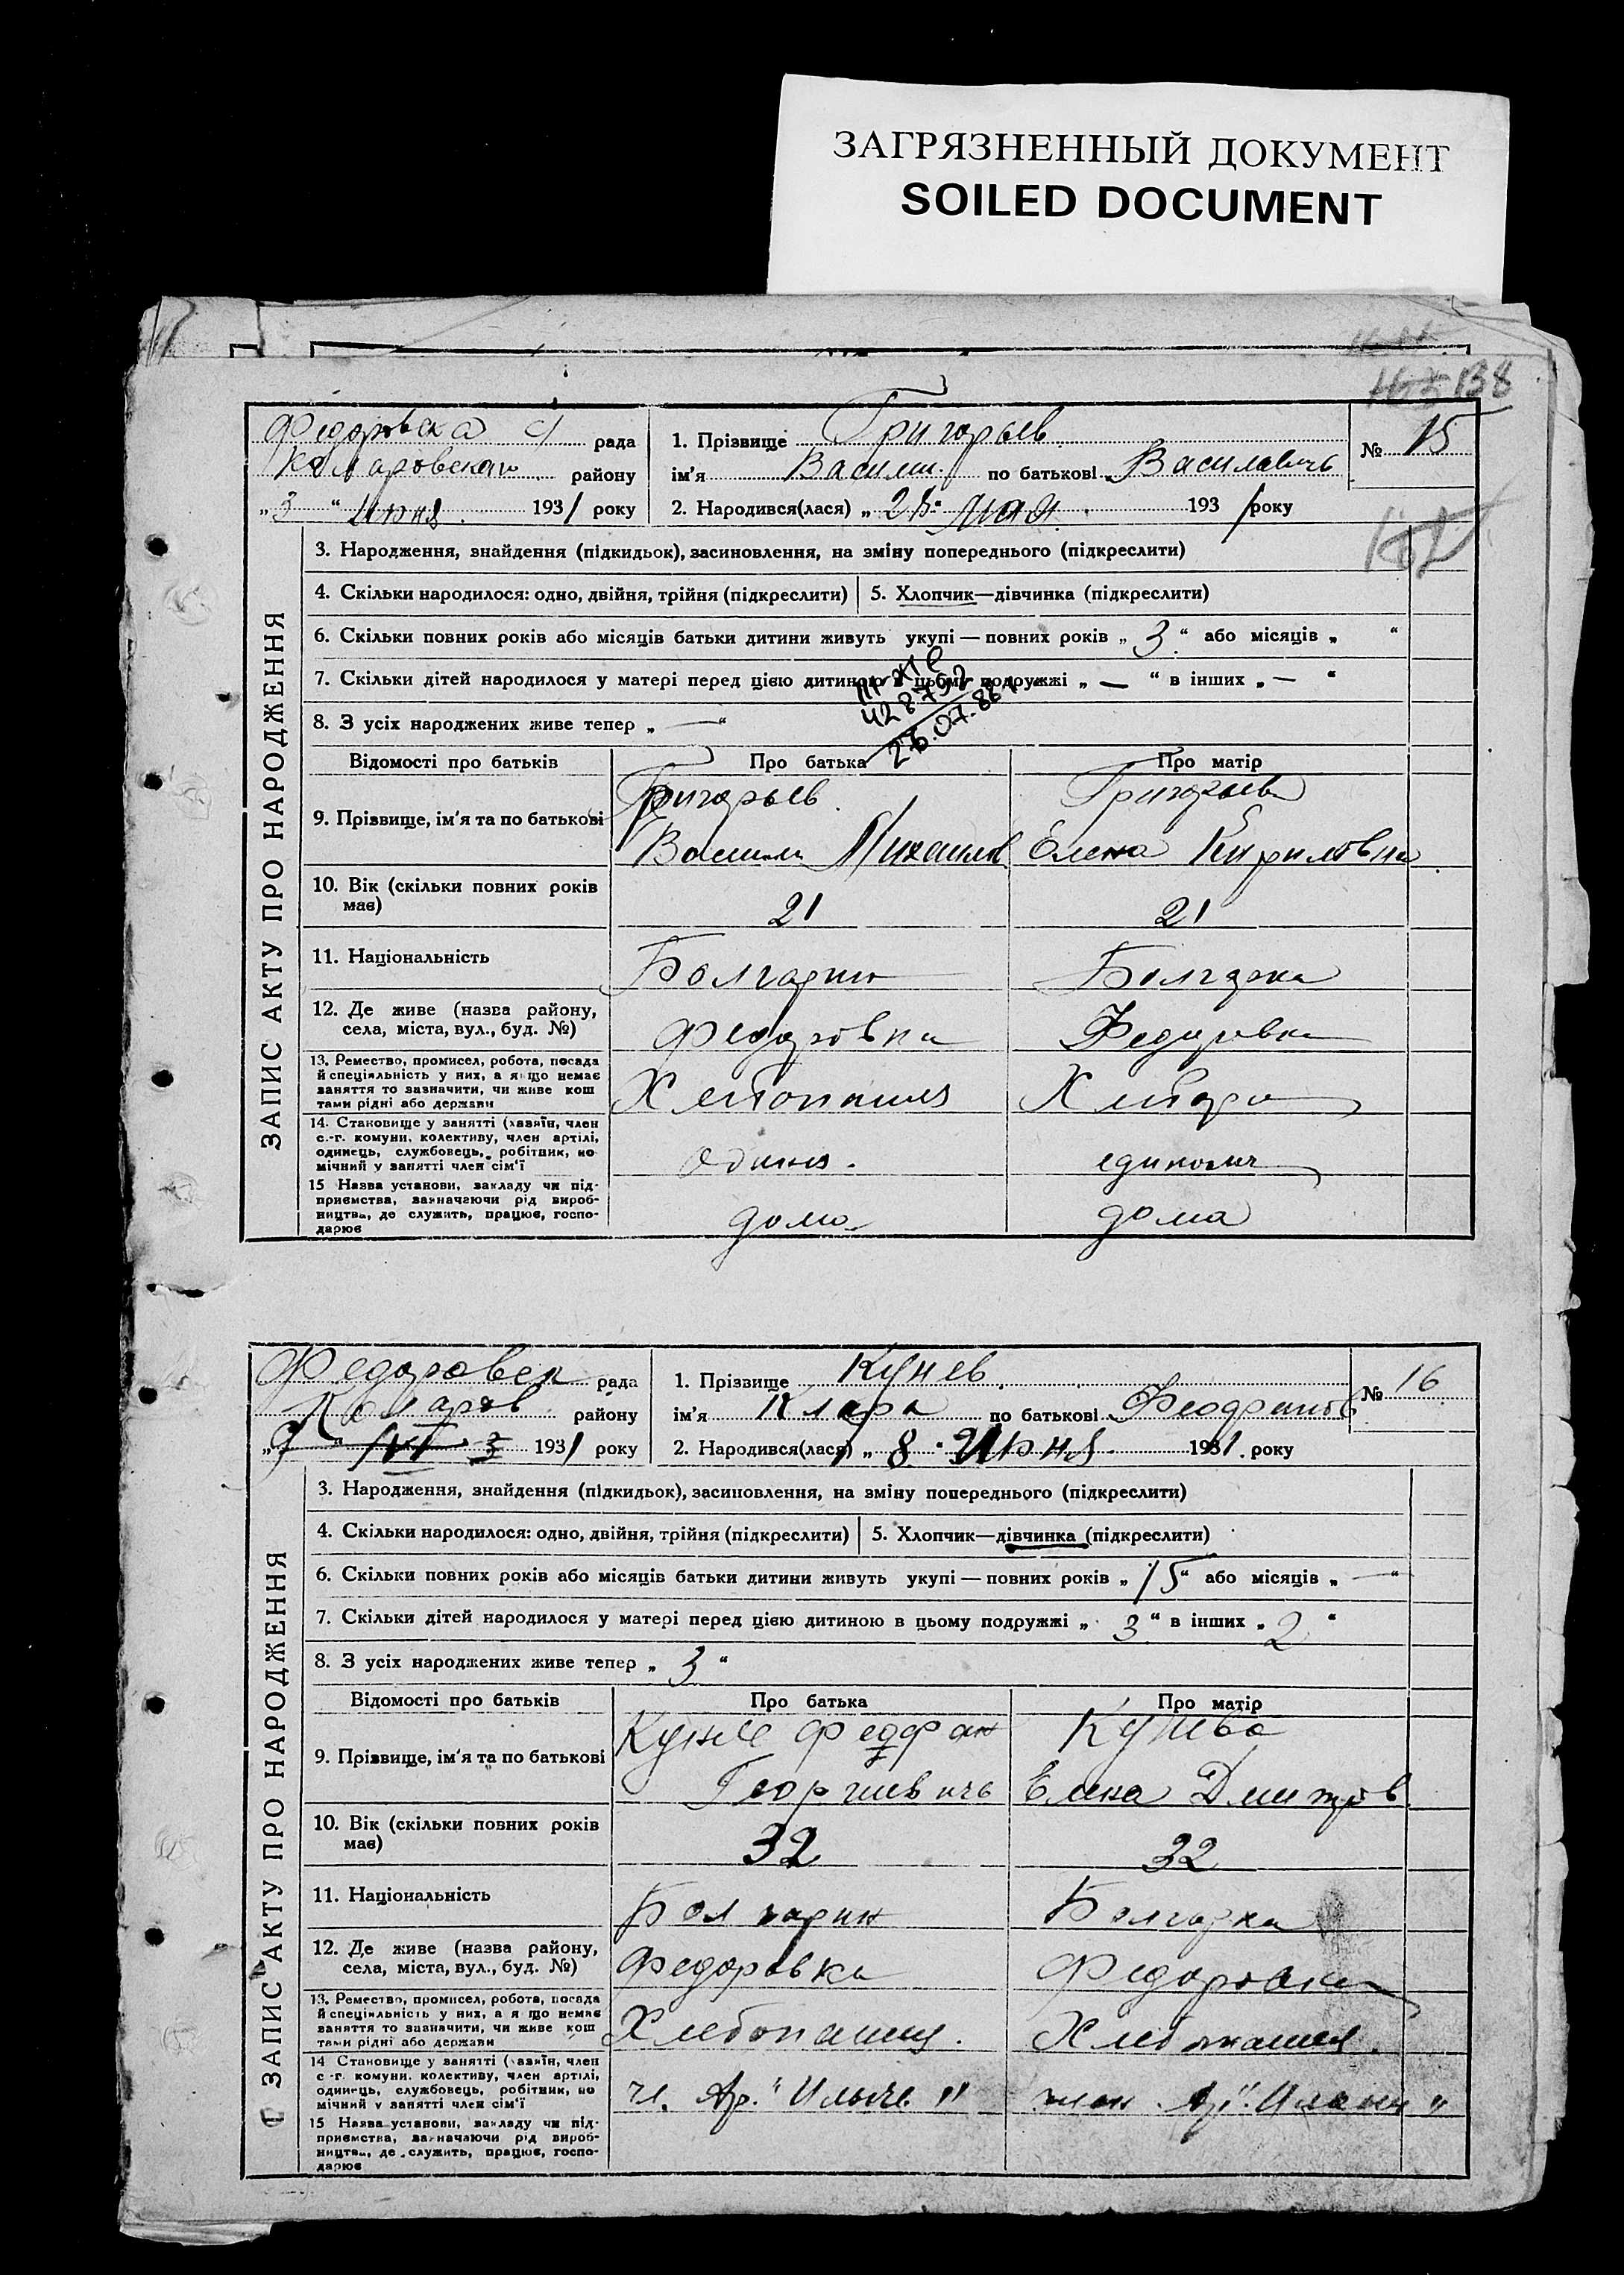 ЗАГРЯЗНЕННЫЙ ДОКУМЕНТ
SOILED DOCUMENT
138
Федоровска рада
Коларовский району
„3“ июня 1931 року
1. Прізвище Григорьев
ім'я Васили по батькові Василевичь
2. Народився(лася) „ мая 1931 року
№ 15
ЗАПИС АКТУ ПРО НАРОДЖЕННЯ
3. Народження, знайдення (підкидьок), засиновлення, на зміну попереднього (підкреслити)
4. Скільки народилося: одно, двійня, трійня (підкреслити) 5. Хлопчик—дівчинка (підкреслити)
6. Скільки повних років або місяців батьки дитини живуть укупі — повних років „ 3 “ або місяців „ “
7. Скільки дітей народилося у матері перед цією дитиною в цьому подружжі „ — “ в інших „ — “
428792
26.07.88
8. З усіх народжених живе тепер „ — “
Відомості про батьків Про батька Про матір
9. Прізвище, ім'я та по батькові
Григорьев Григорьева
Васили Михаилов Елена Кириловна
10. Вік (скільки повних років має) 21 21
11. Національність Болгарин Болгарка
12. Де живе (назва району, села, міста, вул., буд. №) Федоровка Федоровка
13. Ремество, промисел, робота, посада й спеціяльність у них, а якщо немає заняття то зазначити, чи живе коштами рідні або держави
14. Становище у занятті (хазяїн, член с.-г. комуни, колективу, член артілі, одинець, службовець, робітник, помічний у занятті член сім'ї
15 Назва установи, закладу чи підприємства, зазначаючи рід виробництва, де служить, працює, господарює
дома дома
Федоровск рада
Коларов району
1931 року
1. Прізвище Кунев
ім'я Клара по батькові Феофанов
2. Народився(лася) „ 8 “ Июня 1931 року
№ 16
ЗАПИС АКТУ ПРО НАРОДЖЕННЯ
3. Народження, знайдення (підкидьок), засиновлення, на зміну попереднього (підкреслити)
4. Скільки народилося: одно, двійня, трійня (підкреслити) 5. Хлопчик—дівчинка (підкреслити)
6. Скільки повних років або місяців батьки дитини живуть укупі — повних років „ 15 “ або місяців „ — “
7. Скільки дітей народилося у матері перед цією дитиною в цьому подружжі „ 3 “ в інших „ 2 “
8. З усіх народжених живе тепер „ 3 “
Відомості про батьків Про батька Про матір
9. Прізвище, ім'я та по батькові
Кунев Феофан Кунева
Георгиевичь Елена Дмитров
10. Вік (скільки повних років має) 32 32
11. Національність Болгарин Болгарка
12. Де живе (назва району, села, міста, вул., буд. №) Федоровка Федоровка
13. Ремество, промисел, робота, посада й спеціяльність у них, а якщо немає заняття то зазначити, чи живе коштами рідні або держави
Хлебопашец Хлебопашец
14 Становище у занятті (хазяїн, член с.-г. комуни, колективу, член артілі, одинець, службовець, робітник, помічний у занятті член сім'ї
чл. Ар. член Ар.
15 Назва установи, закладу чи підприємства, зазначаючи рід виробництва, де служить, працює, господарює